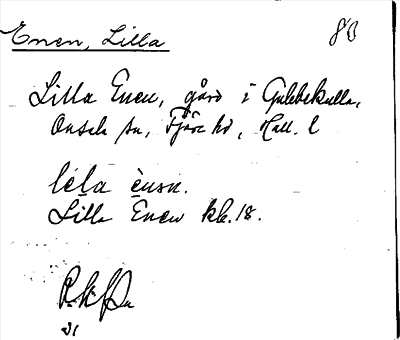 Enen, Lilla 80
Lilla Enen, gård i Gulebskulla,
Onsala sn, Fjäre hd, Hall. l
lela ensn.
Lilla Enen kk. 18.